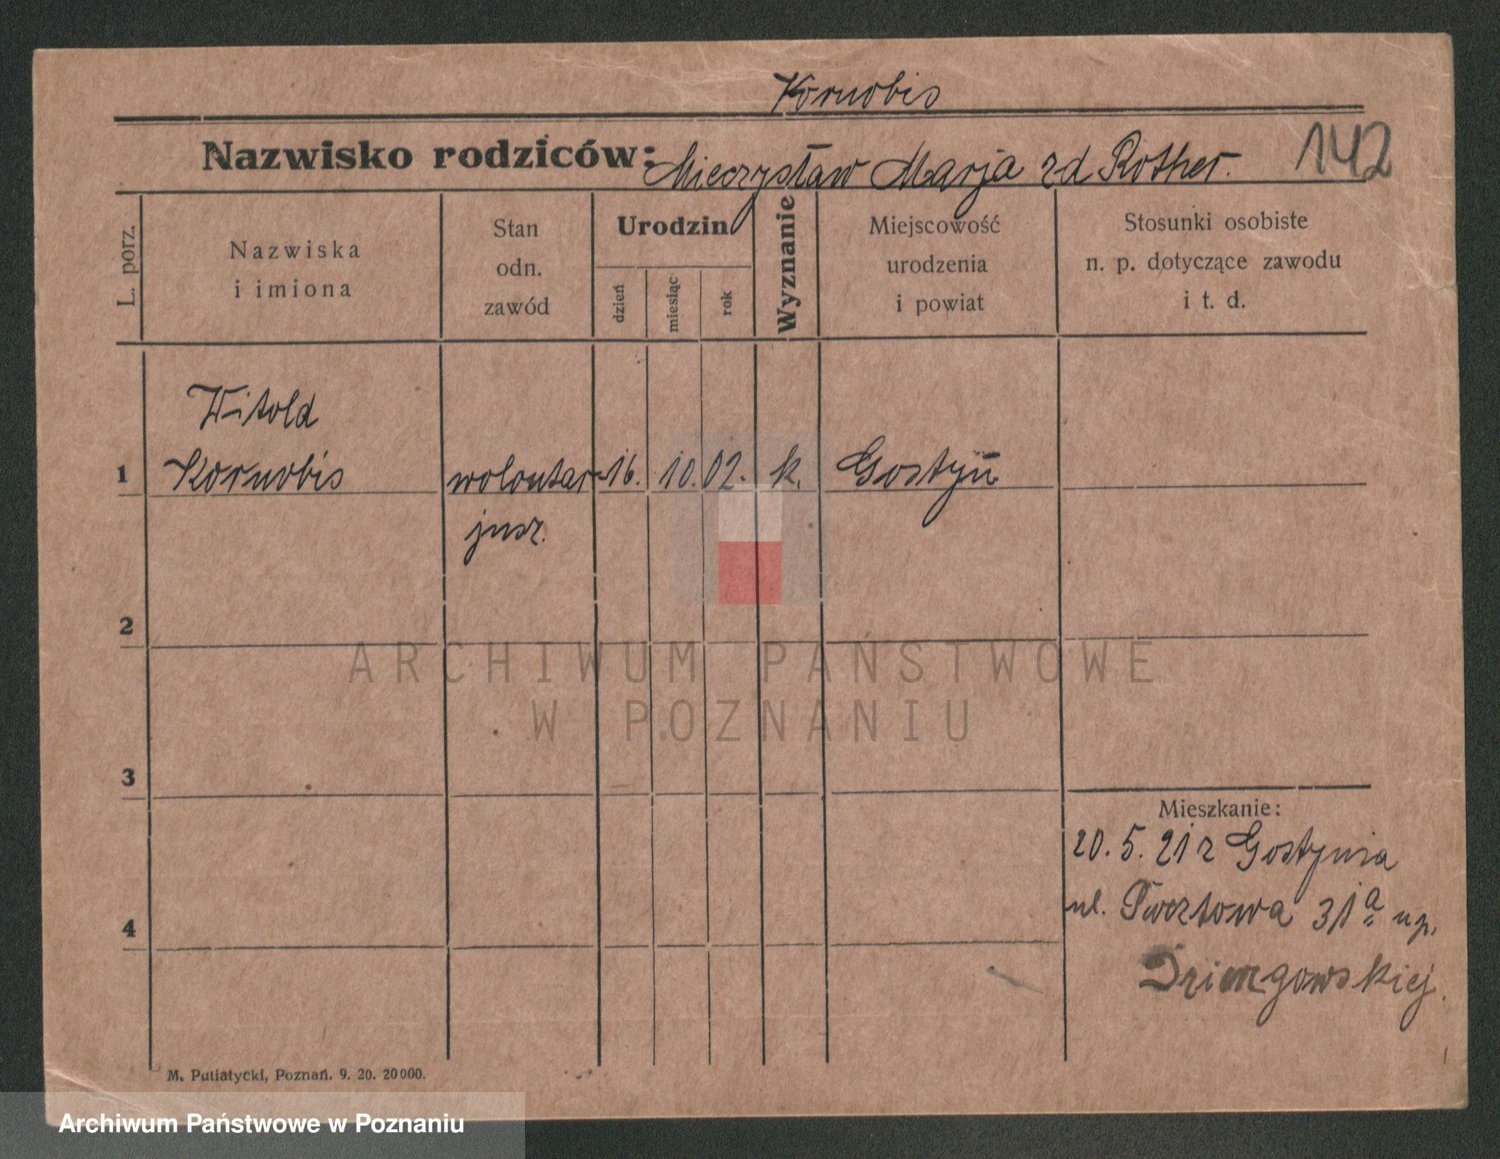 Kornobis
Nazwisko rodziców: Mieczysław Marja zd Rother. 142
L. porz.
Nazwiska
i imiona
Stan
odn.
zawód
Urodzin
dzień
miesiąc
rok
Wyznanie
Miejscowość
urodzenia
i powiat
Stosunki osobiste
n. p. dotyczące zawodu
i t. d.
Witold
1 Kornobis wolontar- 16. 10. 02. k. Gostyń
jusz.
2
3
Mieszkanie:
20. 5. 21 z Gostynia
ul. 31a u p.
4
M. Putiatycki, Poznań. 9. 20. 20000.
ARCHIWUM PAŃSTWOWE
W POZNANIU
Archiwum Państwowe w Poznaniu